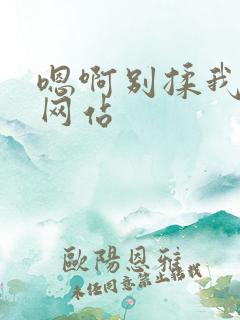 嗯啊别揉我
网站
歐陽恩雅
未经同意禁止转载